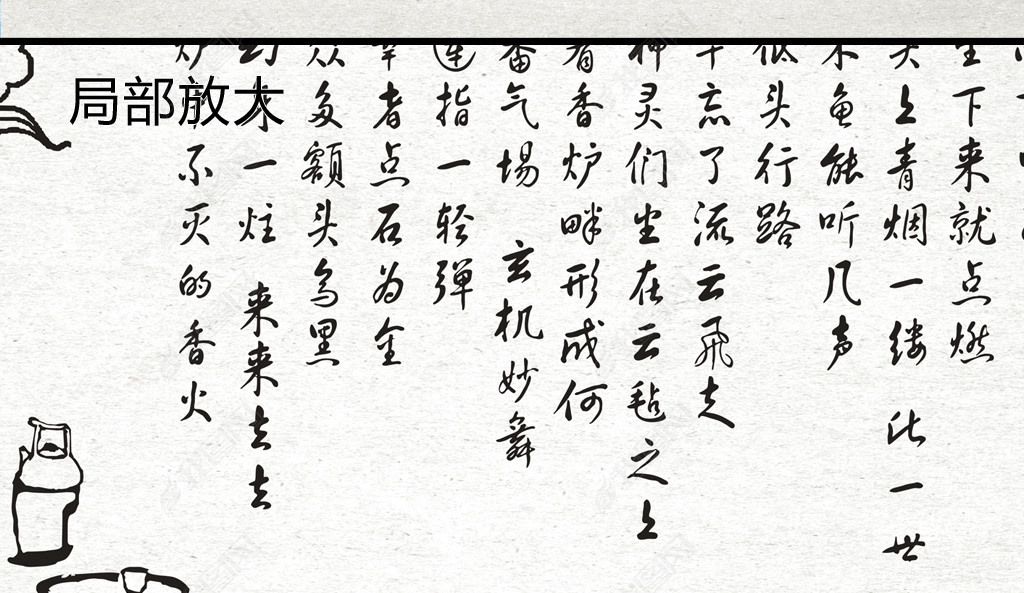 局部放大
下来就点燃
头上青烟一缕 此一世
木鱼能听几声
低头行路
忘了流云飞走
神灵们坐在云毡之上
看香炉畔形成何
番气场 玄机妙舞
连指一轻弹
者点石为金
众多额头乌黑
一炷 来来去去
炉 不灭的香火